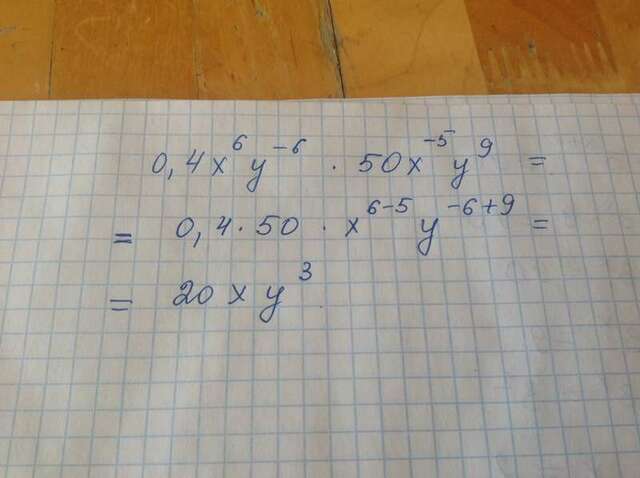 0,4x⁶y⁻⁶ · 50x⁻⁵y⁹ =
= 0,4 · 50 · x⁶⁻⁵ y⁻⁶⁺⁹ =
= 20xy³